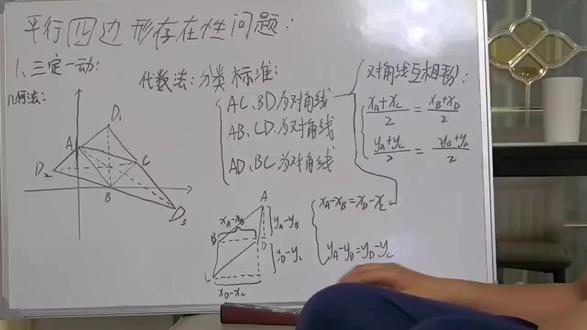 平行四边形存在性问题:
1、三定一动:
几何法:
A
B
C
D₁
D₂
D₃
代数法:分类标准:
AC、BD为对角线
AB、CD为对角线
AD、BC为对角线
对角线互相平分:
(x_A+x_C)/2 = (x_B+x_D)/2
x_A-x_B=x_D-x_C
y_A-y_B=y_D-y_C
A
B
C
D
x_A-x_B
y_A-y_B
y_D-y_C
x_D-x_C